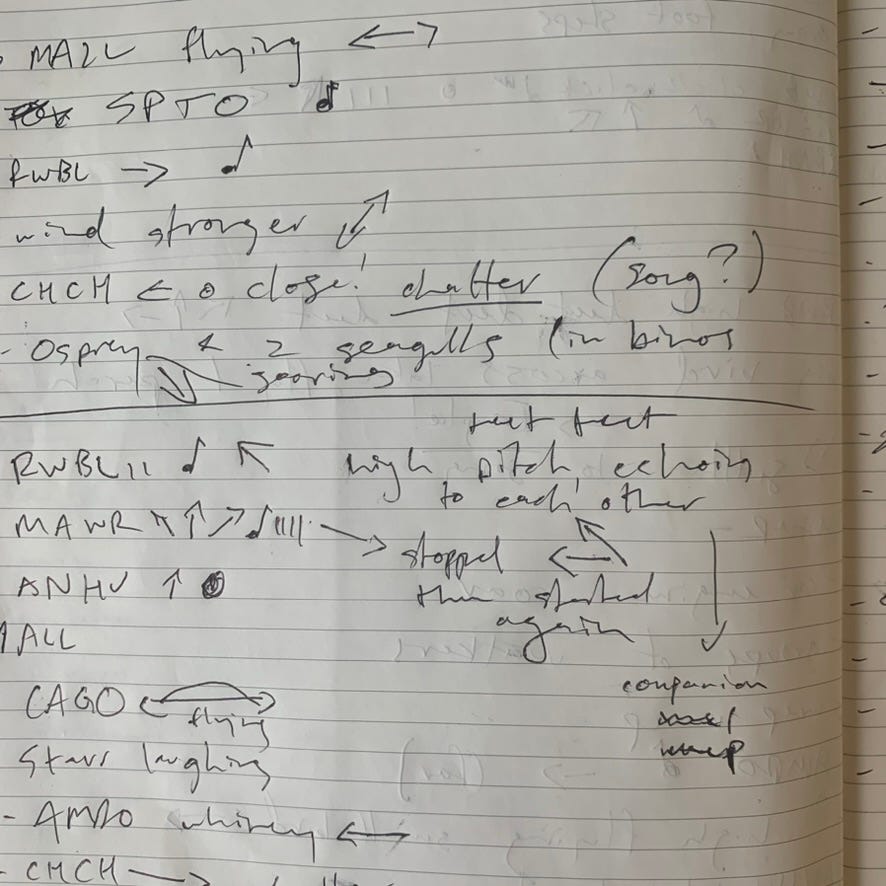 MALL flying ↔
SPTO ♪
RWBL → ♪
wind stronger
CHCH ← o close! chatter (song?)
- Osprey & 2 seagulls (in binos
soaring
teet teet
RWBL 11 ♪ ↖ high pitch, echoing
to each other
MAWR ↖ ↑ ↗ ♪ →
stopped ←
then started
again
ANHU ↑
MALL
CAGO ↔
flying
companion
Stars laughing
- AMRO whinny ←
- CHCH →